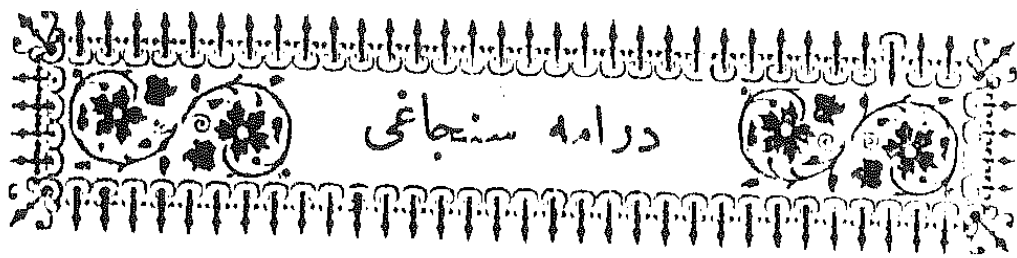 درامه سنجاغی